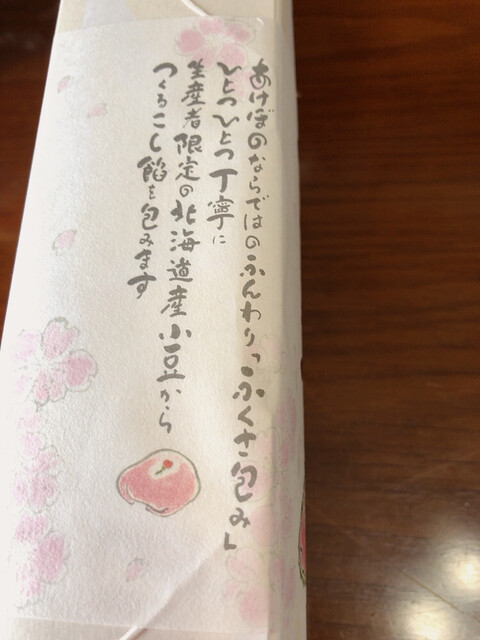 あけぼのならではのふんわり「ふくさ包み」
ひとつひとつ丁寧に
生産者限定の北海道産小豆から
つくるこし餡を包みます